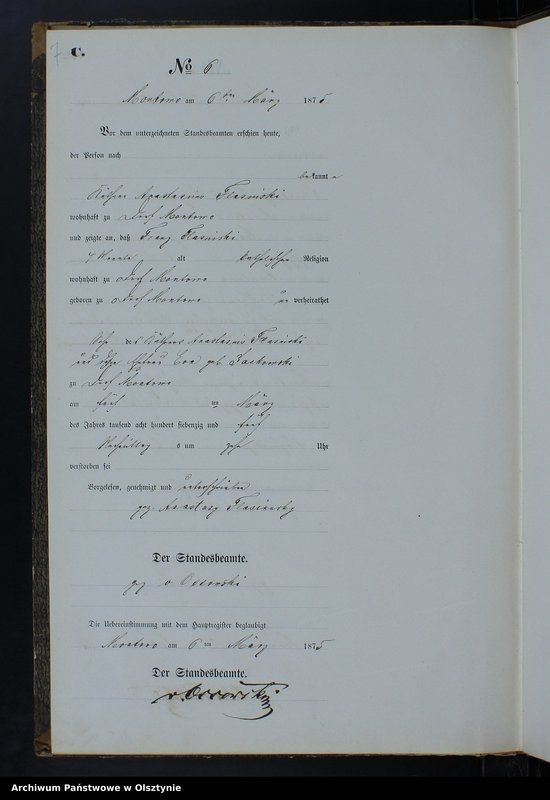 7
C.
No 6
Montowo am 6 ten März 1875
Vor dem unterzeichneten Standesbeamten erschien heute,
der Person nach
bekannt
Käthner Anastasius Flasinski
wohnhaft zu Dorf Montowo
und zeigte an, daß Franz Flasinski
4 Monate alt katholischer Religion
wohnhaft zu Dorf Montowo
geboren zu Dorf Montowo un verheirathet
Sohn des Käthners Anastasius Flasinski
und Eva geb.
zu Dorf Montowo
am fünf ten März
des Jahres tausend acht hundert siebenzig und fünf
Nachmittag s um Uhr
verstorben sei
Vorgelesen, genehmigt und unterschrieben
gez. Anastasy Flasinsky
Der Standesbeamte.
gez v Ossowski
Die Uebereinstimmung mit dem Hauptregister beglaubigt
Montowo am 6 ten März 1875
Der Standesbeamte.
v. Ossowski
Archiwum Państwowe w Olsztynie